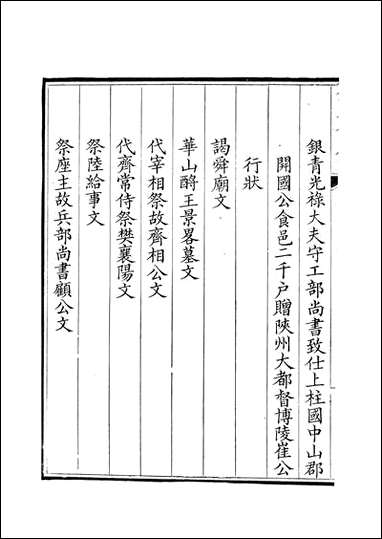 銀青光祿大夫守工部尚書致仕上柱國中山郡
開國公食邑二千户贈陝州大都督博陵崔公
行狀
謁舜廟文
華山酹王景畧墓文
代宰相祭故齊相公文
代齊常侍祭樊襄陽文
祭陸給事文
祭座主故兵部尚書顧公文